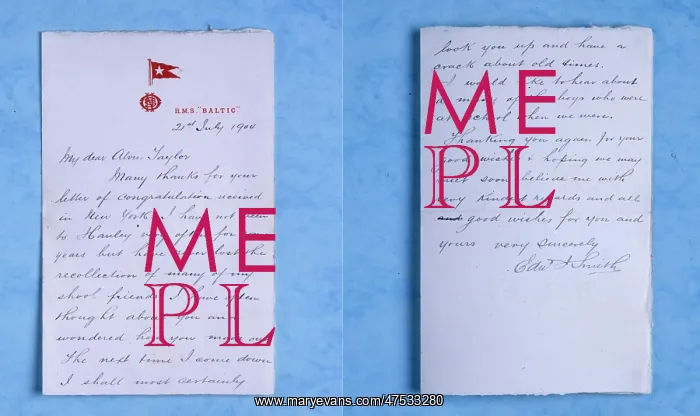 R.M.S. "BALTIC"
21st July 1904
My dear Alvin Taylor
Many thanks for your
letter of congratulation received
in New York. I have not been
to Hanley very often for
years but have never lost the
recollection of many of my
shool friends I have often
thought about you and
wondered how you
The next time I come down
I shall most certainly
ME
PL
look you up and have a
crack about old times.
I would like to hear about
many of the boys who were
at school when we were.
Thanking you again for your
good wishes & hoping we may
meet soon believe me with
very kindest regards and all
and good wishes for you and
yours very sincerely
Edwd J Smith
ME
PL
www.maryevans.com/47533280